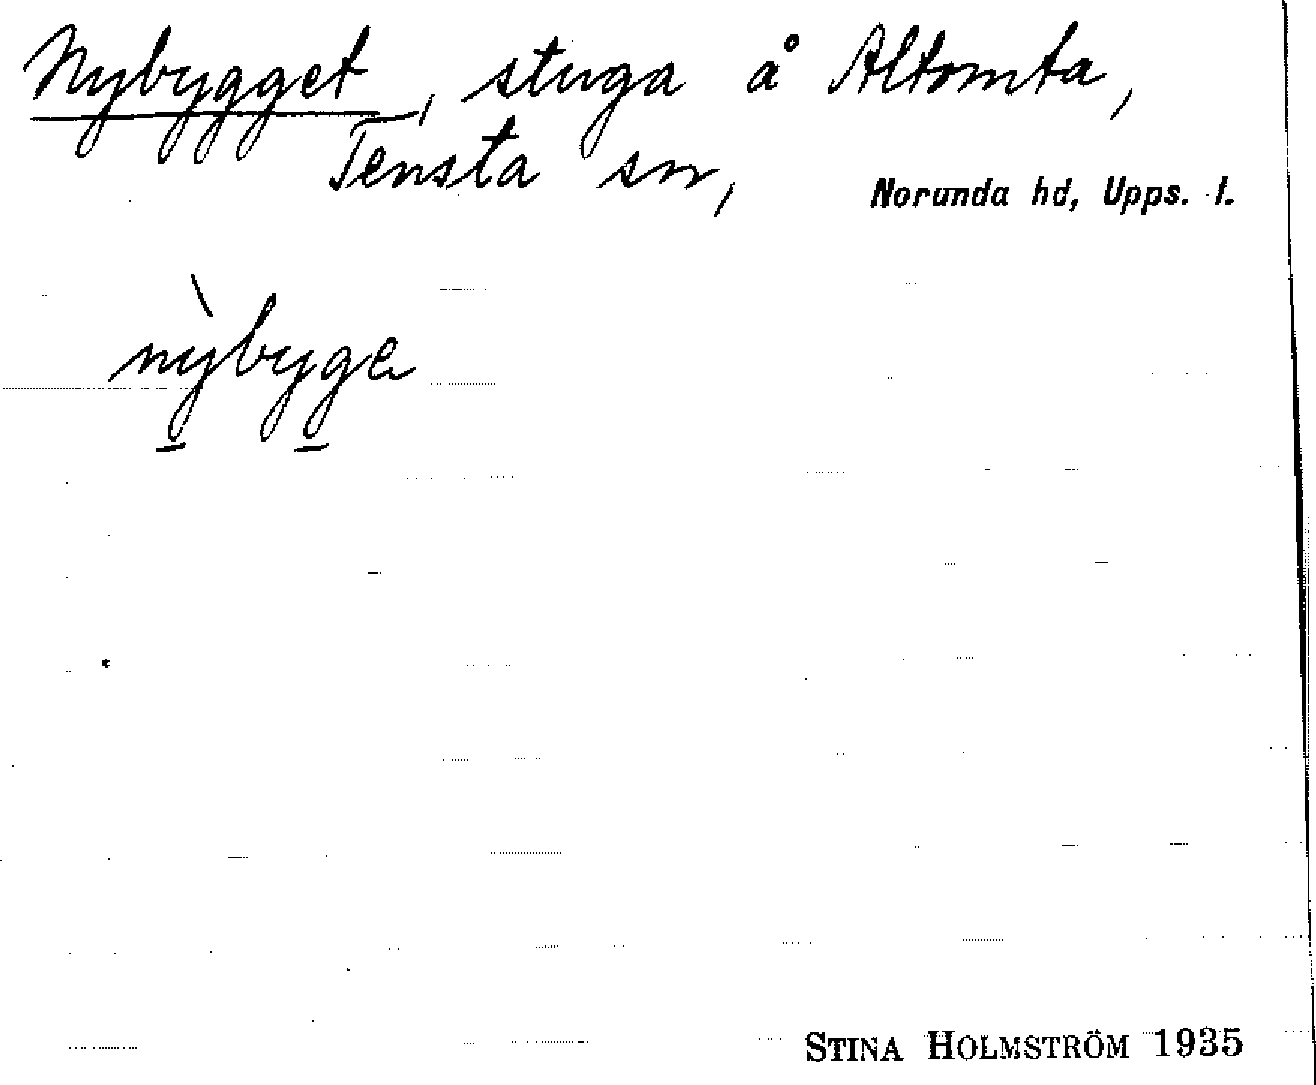 Nybygget, stuga å Altomta,
Tensta sn,
Norunda hd, Upps. l.
nỳbyge
STINA HOLMSTRÖM 1935